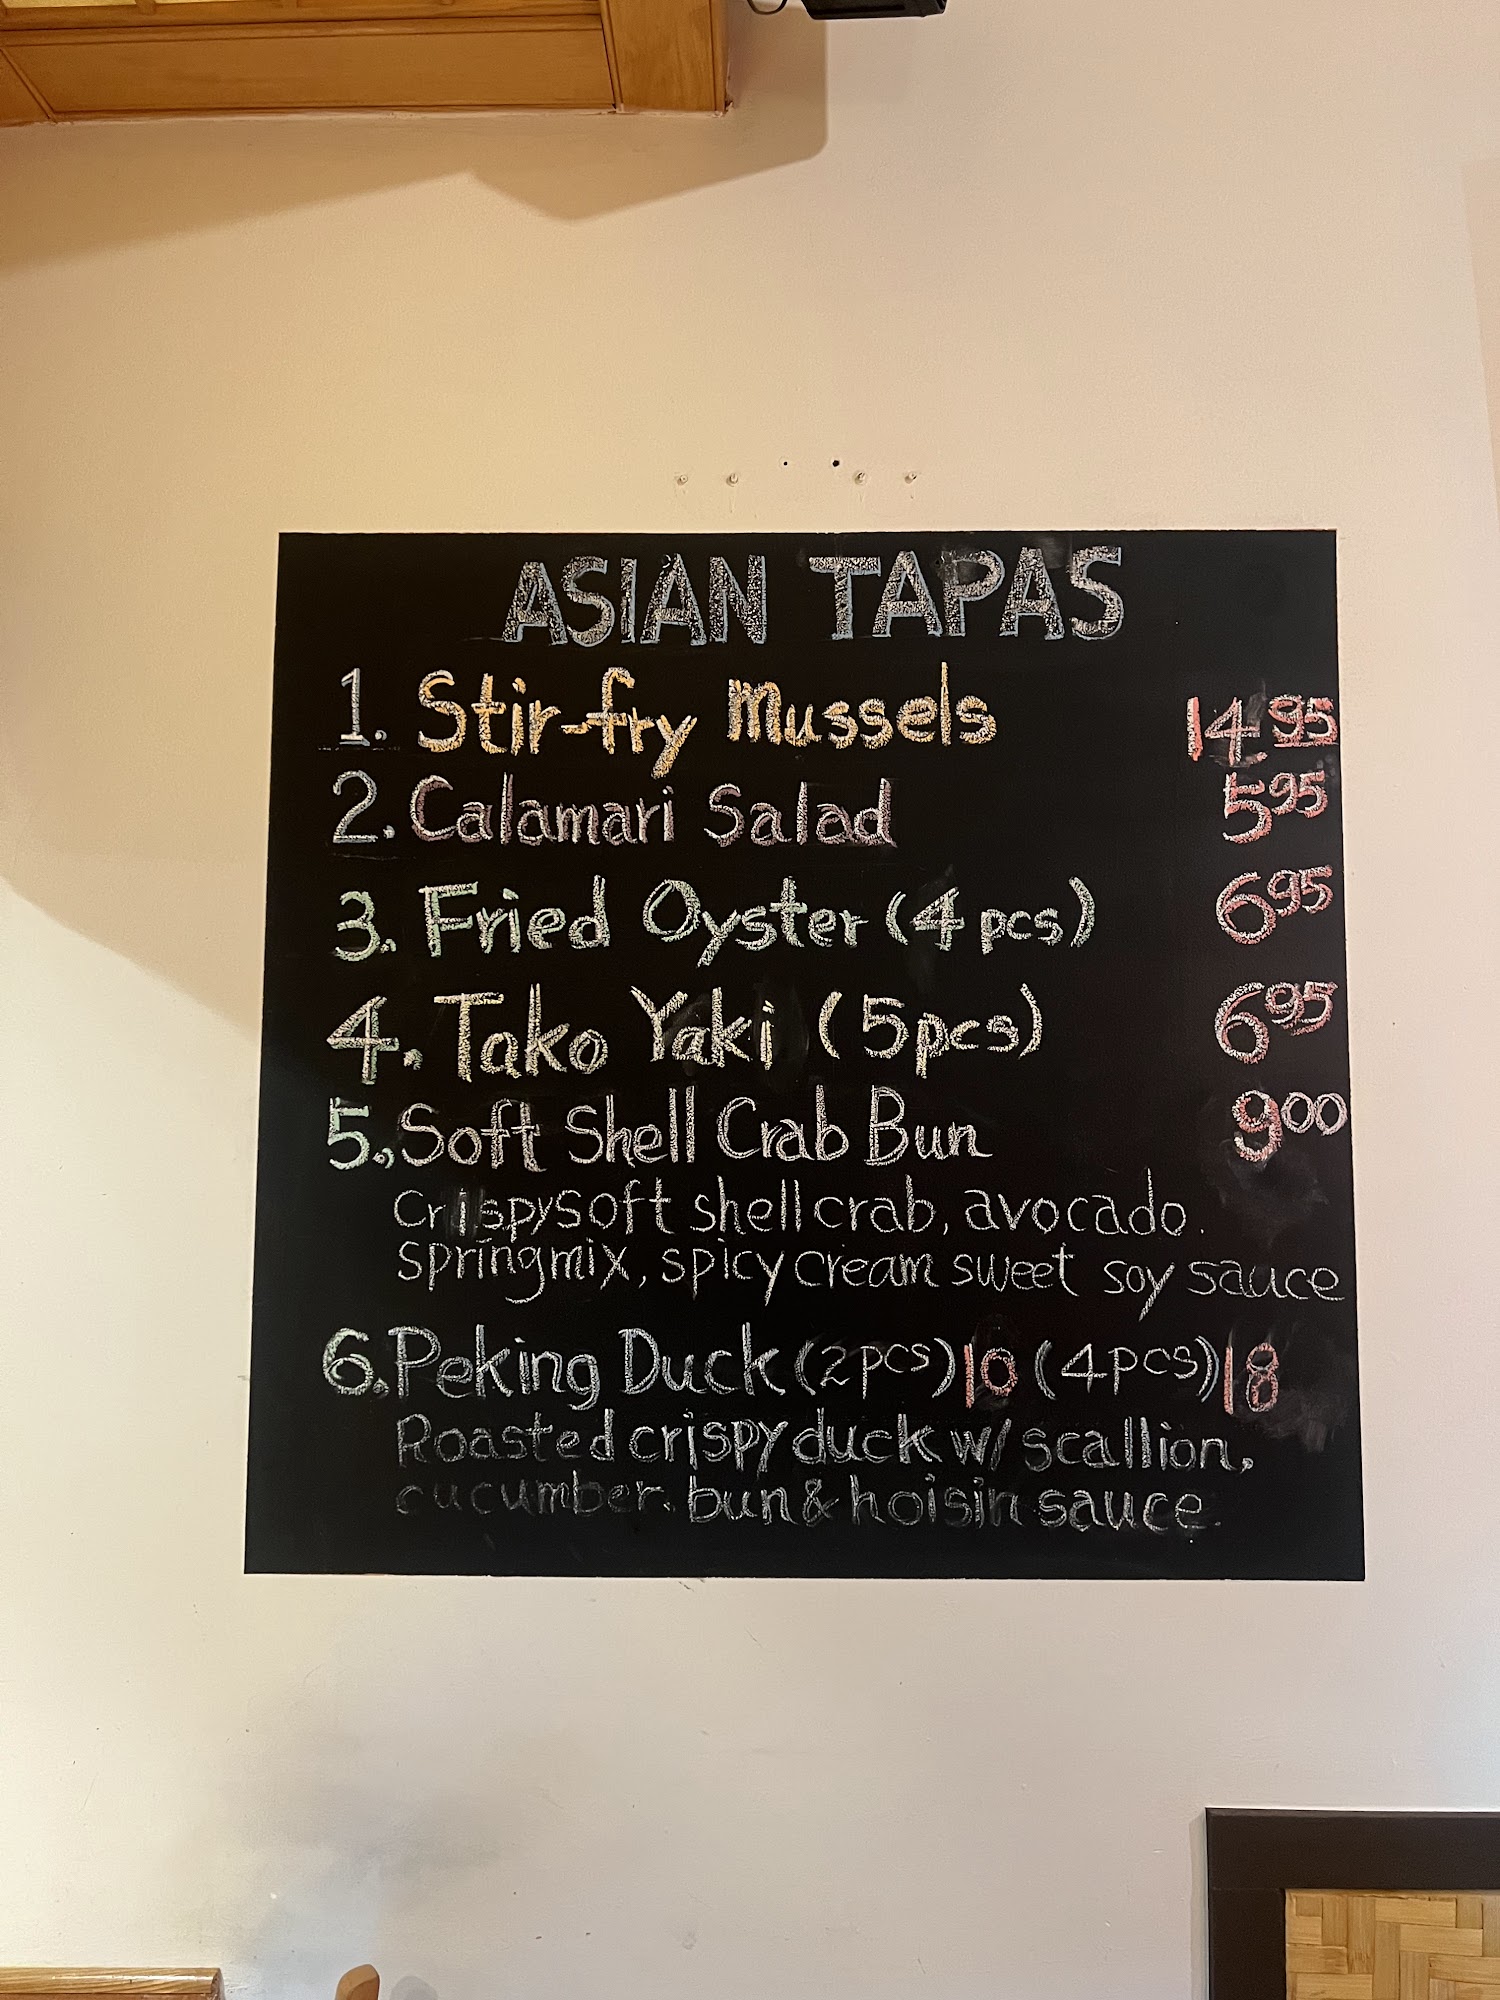 ASIAN TAPAS
1. Stir-fry Mussels 14.95
2. Calamari Salad 5.95
3. Fried Oyster (4 pcs) 6.95
4. Tako Yaki (5pcs) 6.95
5. Soft Shell Crab Bun 9.00
Crispy soft shell crab, avocado.
spring mix, spicy cream sweet soy sauce
6. Peking Duck (2pcs) 10 (4pcs) 18
Roasted crispy duck w/ scallion,
cucumber. bun & hoisin sauce.